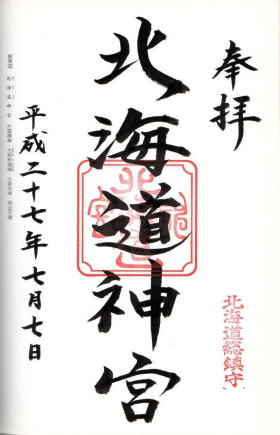 奉拝
北海道総鎮守
北海道神宮
平成二十七年七月七日